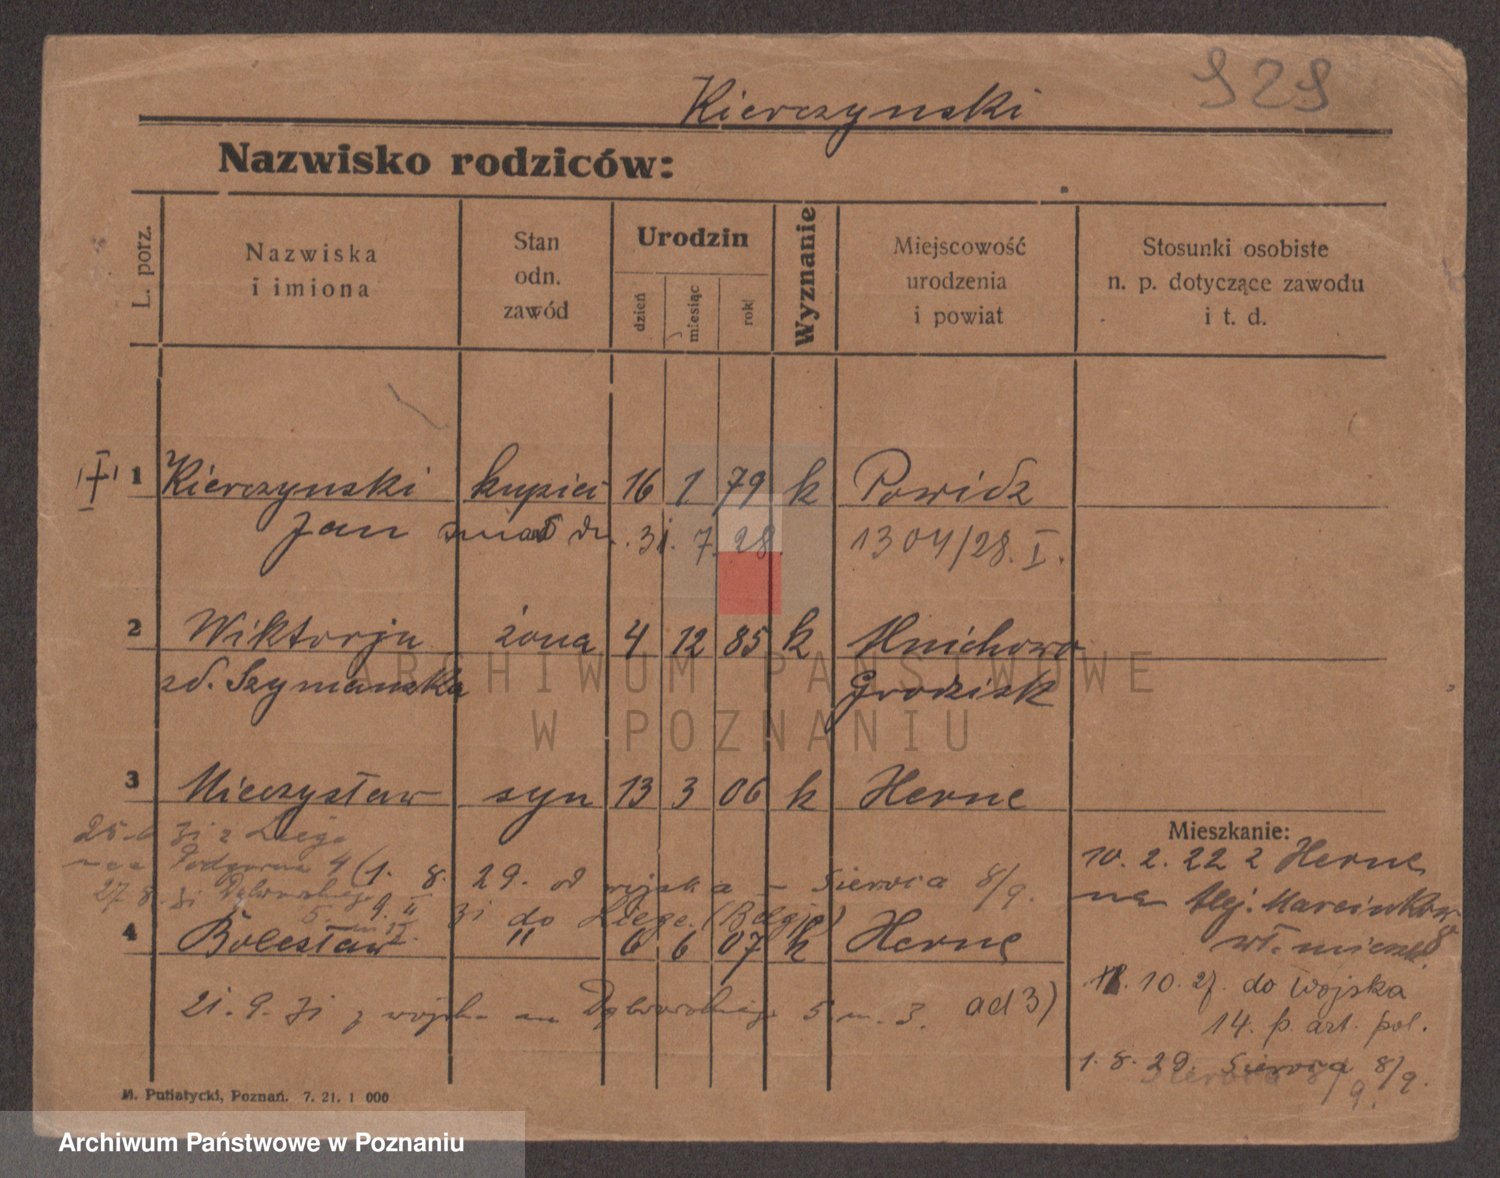 929
Kierczynski
Nazwisko rodziców:
L. porz.
Nazwiska
i imiona
Stan
odn.
zawód
Urodzin
dzień
miesiąc
rok
Wyznanie
Miejscowość
urodzenia
i powiat
Stosunki osobiste
n. p. dotyczące zawodu
i t. d.
1 Kierczynski kupiec 16 1 79 k Powidz
Jan zmarł dn. 31. 7. 28. 1304/28. I.
2 Wiktorja żona 4 12 85 k Mnichowo
zd. Szymanska Grodzisk
3 Mieczysław syn 13 3 06 k Herne
25. zi z Liège
Podgorna 4 (1. 8. 29. od wojska – Sieroca 8/9.
27. 8. zi Dąbrowskiego 5 9. II zi do Liege. (Belgje)
4 Bolesław " 6 6 07 k Herne
21. 9. zi z wojska na Dąbrowskiego 5 m. 3. ad 3)
Mieszkanie:
10. 2. 22 z Herne
na Alej. Marcinkow
8
wł. mieszk.
10. 27. do wojska
14. p. art. pol.
1. 8. 29. Sieroca 8/9.
Sieroca 8/9.
M. Putiatycki, Poznań. 7. 21. 1 000
ARCHIWUM PAŃSTWOWE
W POZNANIU
Archiwum Państwowe w Poznaniu